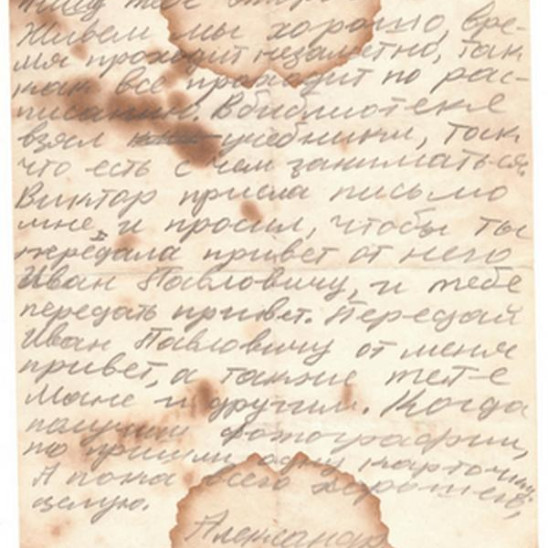 пишу тебе
Живем мы хорошо, вре-
мя проходит незаметно, так
как все проходит по рас-
писанию. В библиотеке
взял учебники, так
что есть с чем заниматься.
Виктор присла письмо
мне и просил, чтобы ты
передала привет от него
Иван Павловичу, и тебе
передать привет. Передай
Иван Павловичу от меня
привет, а также тет-е
Мане и другим. Когда
получим фотографии,
то пришли карточку.
А пока всего хорошего,
целую.
Александр